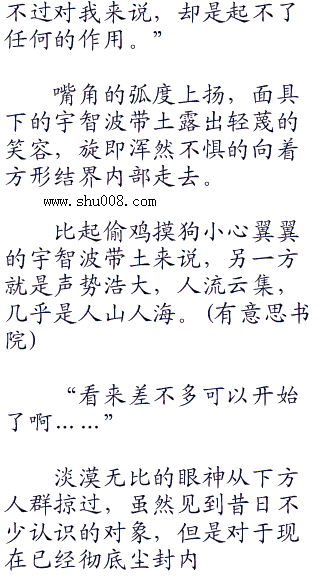 不过对我来说，却是起不了
任何的作用。”
嘴角的弧度上扬，面具
下的宇智波带土露出轻蔑的
笑容，旋即浑然不惧的向着
方形结界内部走去。
www.shu008.com
比起偷鸡摸狗小心翼翼
的宇智波带土来说，另一方
就是声势浩大，人流云集，
几乎是人山人海。(有意思书
院)
“看来差不多可以开始
了啊……”
淡漠无比的眼神从下方
人群掠过，虽然见到昔日不
少认识的对象，但是对于现
在已经彻底尘封内